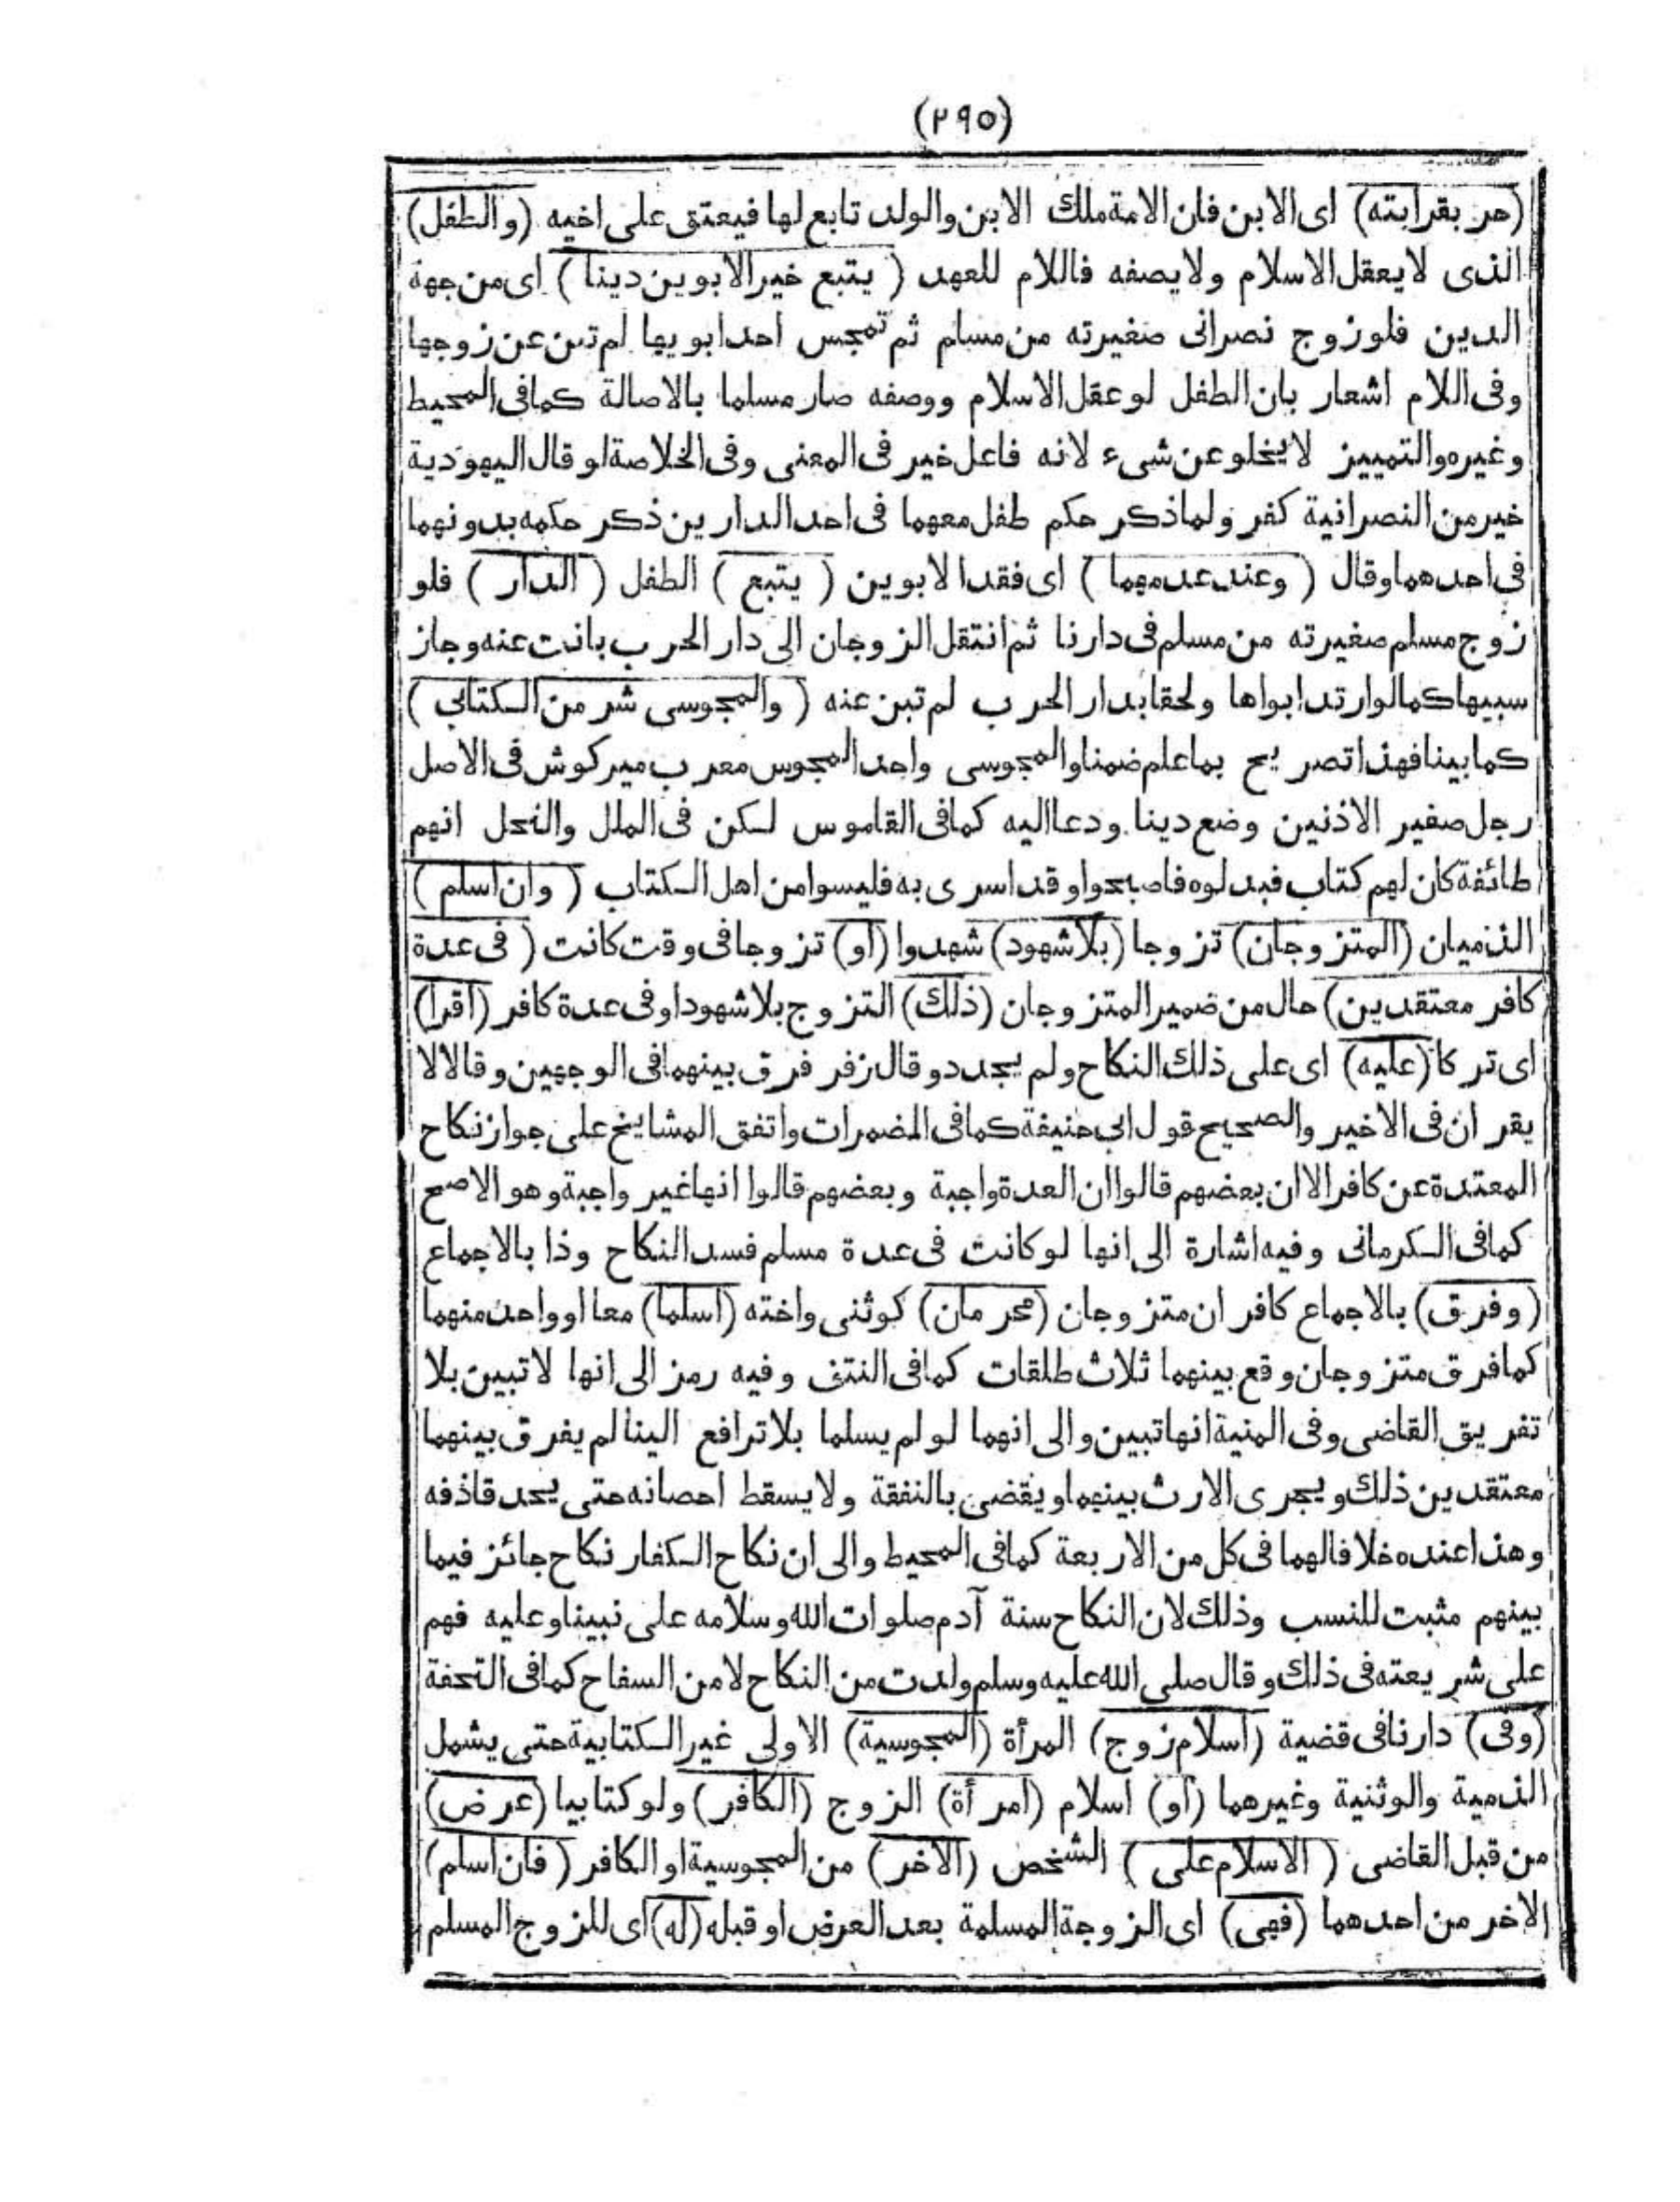 (٢٩٥)
(حر بقرابته) اى الابن فان الامة ملك الابن والولد تابع لها فيعتق على اخيه (والطفل)
الذى لايعقل الاسلام ولايصفه فاللام للعهد (يتبع خير الابوين دينا) اى من جهة
الدين فلو زوج نصرانى صغيرته من مسلم ثم تمجس احد ابويها لم تبن عن زوجها
وفى اللام اشعار بان الطفل لو عقل الاسلام ووصفه صار مسلما بالاصالة كما فى المحيط
وغيره والتمييز لايخلو عن شىء لانه فاعل خير فى المعنى وفى الخلاصة لو قال اليهودية
خير من النصرانية كفر ولما ذكر حكم طفل معهما فى احد الدارين ذكر حكمه بدونهما
فى احدهما وقال (وعند عدمهما) اى فقد الابوين (يتبع) الطفل (الدار) فلو
زوج مسلم صغيرته من مسلم فى دارنا ثم انتقل الزوجان الى دار الحرب بانت عنه وجاز
سبيها كما لو ارتد ابواها ولحقا بدار الحرب لم تبن عنه (والمجوسى شر من الكتابى)
كما بينا فهذا تصريح بما علم ضمنا والمجوسى واحد المجوس معرب ميركوش فى الاصل
رجل صغير الاذنين وضع دينا ودعا اليه كما فى القاموس لكن فى الملل والنحل انهم
طائفة كان لهم كتاب فبدلوه فاصبحوا وقد اسرى به فليسوا من اهل الكتاب (وان اسلم)
الذميان (المتزوجان) تزوجا (بلا شهود) شهدوا (او) تزوجا فى وقت كانت (فى عدة
كافر معتقدين) حال من ضمير المتزوجان (ذلك) التزوج بلا شهود او فى عدة كافر (اقرا)
اى تركا (عليه) اى على ذلك النكاح ولم يجدد وقال زفر فرق بينهما فى الوجهين وقالا لا
يقران فى الاخير والصحيح قول ابى حنيفة كما فى المضمرات واتفق المشايخ على جواز نكاح
المعتدة عن كافر الا ان بعضهم قالوا ان العدة واجبة وبعضهم قالوا انها غير واجبة وهو الاصح
كما فى الكرمانى وفيه اشارة الى انها لو كانت فى عدة مسلم فسد النكاح وذا بالاجماع
(وفرق) بالاجماع كافران متزوجان (محرمان) كوثنى واخته (اسلما) معا او واحد منهما
كما فرق متزوجان وقع بينهما ثلاث طلقات كما فى النتف وفيه رمز الى انها لا تبين بلا
تفريق القاضى وفى المنية انها تبين والى انهما لو لم يسلما بلا ترافع الينا لم يفرق بينهما
معتقدين ذلك ويجرى الارث بينهما ويقضى بالنفقة ولايسقط احصانه حتى يحد قاذفه
وهذا عنده خلافا لهما فى كل من الاربعة كما فى المحيط والى ان نكاح الكفار نكاح جائز فيما
بينهم مثبت للنسب وذلك لان النكاح سنة آدم صلوات الله وسلامه على نبينا وعليه فهم
على شريعته فى ذلك وقال صلى الله عليه وسلم ولدت من النكاح لا من السفاح كما فى التحفة
(وفى) دارنا فى قضية (اسلام زوج) المرأة (المجوسية) الاولى غير الكتابية حتى يشمل
الذمية والوثنية وغيرهما (او) اسلام (امرأة) الزوج (الكافر) ولو كتابيا (عرض)
من قبل القاضى (الاسلام على) الشخص (الآخر) من المجوسية او الكافر (فان اسلم)
الاخر من احدهما (فهى) اى الزوجة المسلمة بعد العرض او قبله (له) اى للزوج المسلم